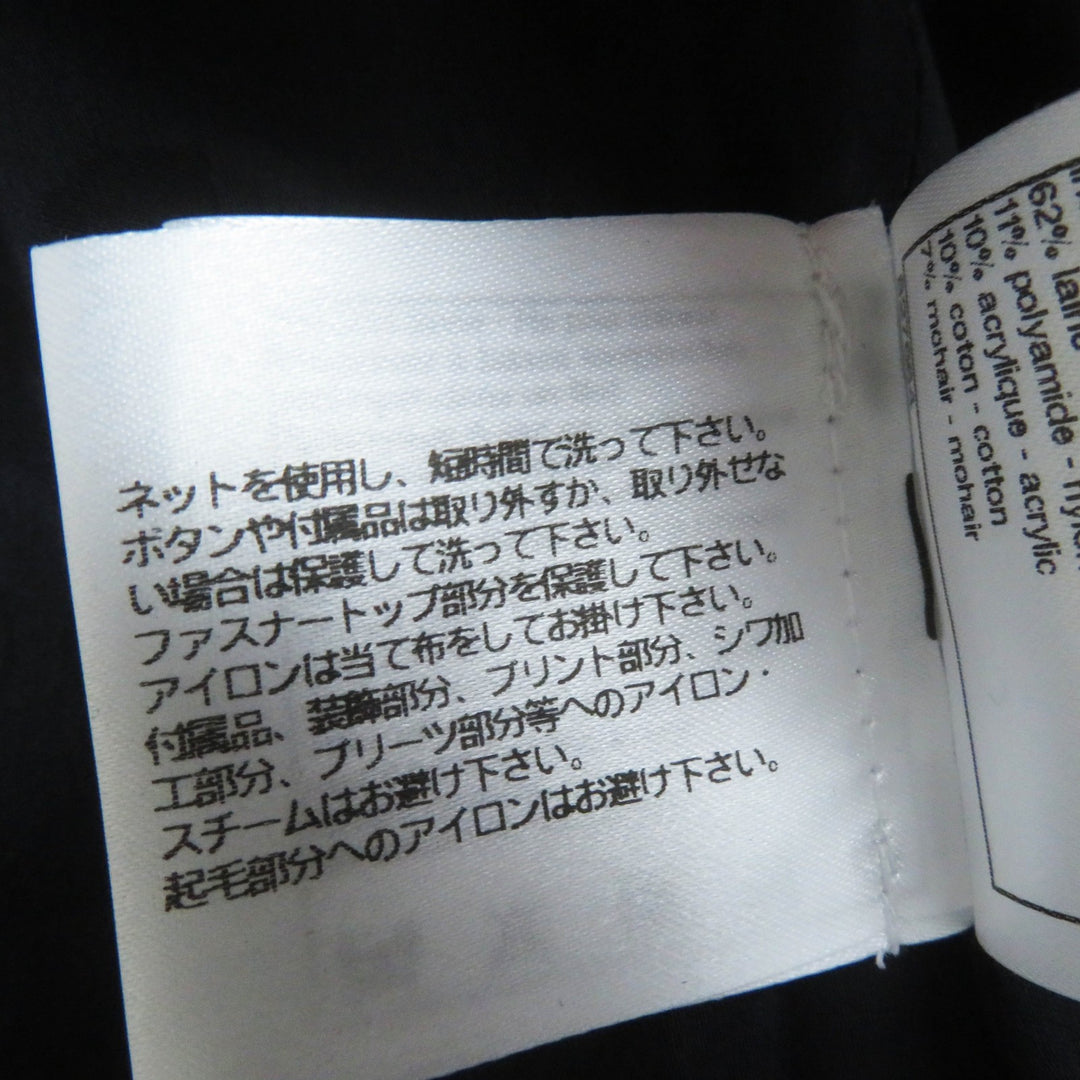 ネットを使用し、短時間で洗って下さい。
ボタンや付属品は取り外すか、取り外せな
い場合は保護して洗って下さい。
ファスナートップ部分を保護して下さい。
アイロンは当て布をしてお掛け下さい。
付属品、装飾部分、プリント部分、シワ加
工部分、プリーツ部分等へのアイロン・
スチームはお避け下さい。
起毛部分へのアイロンはお避け下さい。
62% laine
11% polyamide -
10% acrylique - acrylic
10% coton - cotton
7% mohair - mohair